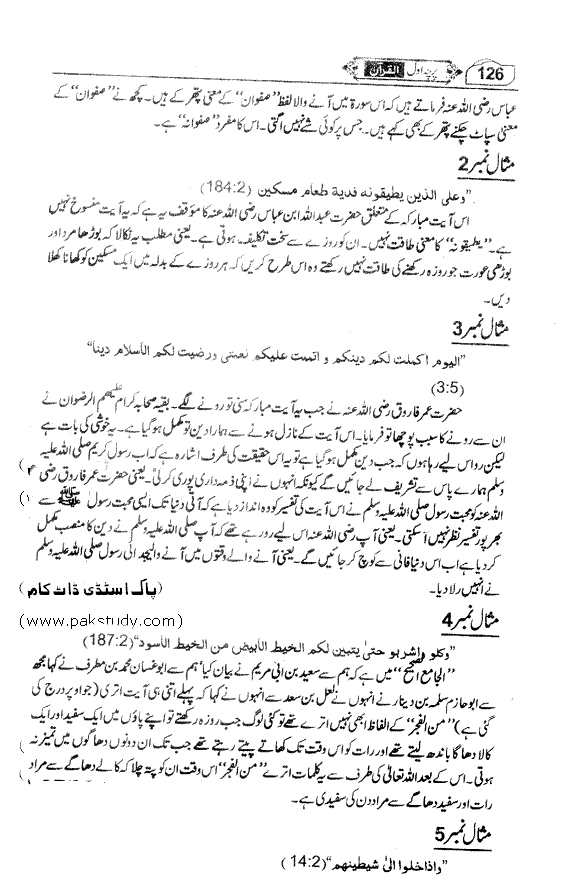 126 پرچہ اول القرآن
عباس رضی اللہ عنہ فرماتے ہیں کہ اس سورۃ میں آنے والا لفظ ”صفوان“ کے معنی پتھر کے ہیں۔ کچھ نے ”صفوان“ کے
معنی سپاٹ چکنے پتھر کے بھی کہے ہیں۔ جس پر کوئی شے نہیں اگتی۔ اس کا مفرد ”صفوانہ“ ہے۔
مثال نمبر 2
”وعلی الذین یطیقونہ فدیة طعام مسکین (184:2)
اس آیت مبارکہ کے متعلق حضرت عبداللہ ابن عباس رضی اللہ عنہ کا مؤقف یہ ہے کہ یہ آیت منسوخ نہیں
ہے۔ ”یطیقونہ“ کا معنی طاقت نہیں۔ ان کو روزے سے سخت تکلیف ہوتی ہے۔ یعنی مطلب یہ نکالا کہ بوڑھا مرد اور
بوڑھی عورت جو روزہ رکھنے کی طاقت نہیں رکھتے وہ اس طرح کریں کہ ہر روزے کے بدلہ میں ایک مسکین کو کھانا کھلا
دیں۔
مثال نمبر 3
”الیوم اکملت لکم دینکم و اتممت علیکم نعمتی ورضیت لکم الأسلام دینا“
(3:5)
حضرت عمر فاروق رضی اللہ عنہ نے جب یہ آیت مبارکہ سنی تو رونے لگے۔ بقیہ صحابہ کرام علیہم الرضوان نے
ان سے رونے کا سبب پوچھا تو فرمایا۔ اس آیت کے نازل ہونے سے ہمارا دین تو مکمل ہو گیا ہے۔ یہ خوشی کی بات ہے
لیکن رو اس لیے رہا ہوں کہ جب دین مکمل ہو گیا ہے تو یہ اس حقیقت کی طرف اشارہ ہے کہ اب رسول کریم صلی اللہ علیہ
وسلم ہمارے پاس سے تشریف لے جائیں گے کیونکہ انہوں نے اپنی ذمہ داری پوری کر لی۔ یعنی حضرت عمر فاروق رضی
اللہ عنہ کو محبت رسول صلی اللہ علیہ وسلم نے اس آیت کی تفسیر کو وہ انداز دیا ہے کہ آتی دنیا تک ایسی محبت رسول ﷺ سے
بھرپور تفسیر نظر نہیں آ سکتی۔ یعنی آپ رضی اللہ عنہ اس لیے رو رہے تھے کہ آپ صلی اللہ علیہ وسلم نے دین کا منصب مکمل
کر دیا ہے اب اس دنیا فانی سے کوچ کر جائیں گے۔ یعنی آنے والے وقتوں میں آنے والی جدائی رسول صلی اللہ علیہ وسلم
نے انہیں رلا دیا۔
(پاک اسٹڈی ڈاٹ کام)
مثال نمبر 4
(www.pakstudy.com)
”وکلو واشربو حتیٰ یتبین لکم الخیط الأبیض من الخیط الأسود“ (187:2)
”الجامع الصحیح“ میں ہے کہ ہم سے سعید بن ابی مریم نے بیان کیا‘ ہم سے ابو غسان محمد بن مطرف نے کہا مجھ
سے ابو حازم سلمہ بن دینار نے انہوں نے سہل بن سعد سے انہوں نے کہا کہ پہلے اتنی ہی آیت اتری (جو اوپر درج کی
گئی ہے) ”من الفجر“ کے الفاظ ابھی نہیں اترے تھے تو کئی لوگ جب روزہ رکھتے تو اپنے پاؤں میں ایک سفید اور ایک
کالا دھاگا باندھ لیتے تھے اور رات کو اس وقت تک کھاتے پیتے رہتے تھے جب تک ان دونوں دھاگوں میں تمیز نہ
ہوتی۔ اس کے بعد اللہ تعالیٰ کی طرف سے یہ کلمات اترے ”من الفجر“ اس وقت ان کو پتہ چلا کہ کالے دھاگے سے مراد
رات اور سفید دھاگے سے مراد دن کی سفیدی ہے۔
مثال نمبر 5
”واذا خلوا الیٰ شیطینھم“ (14:2)